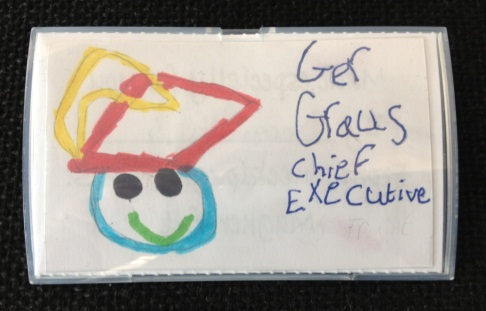 Ger
Graus
Chief
Executive